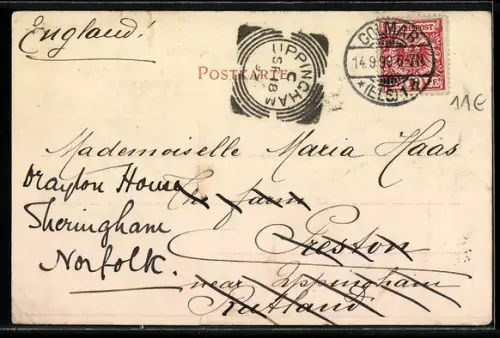 England!
POSTKARTE
UPPINGHAM
C
SP 18
COLMAR
14.9.99.6-7N
*(ELS)1.
11€
Mademoiselle Maria Haas
The farm
Preston
near Uppingham
Rutland
Drayton House
Sheringham
Norfolk.